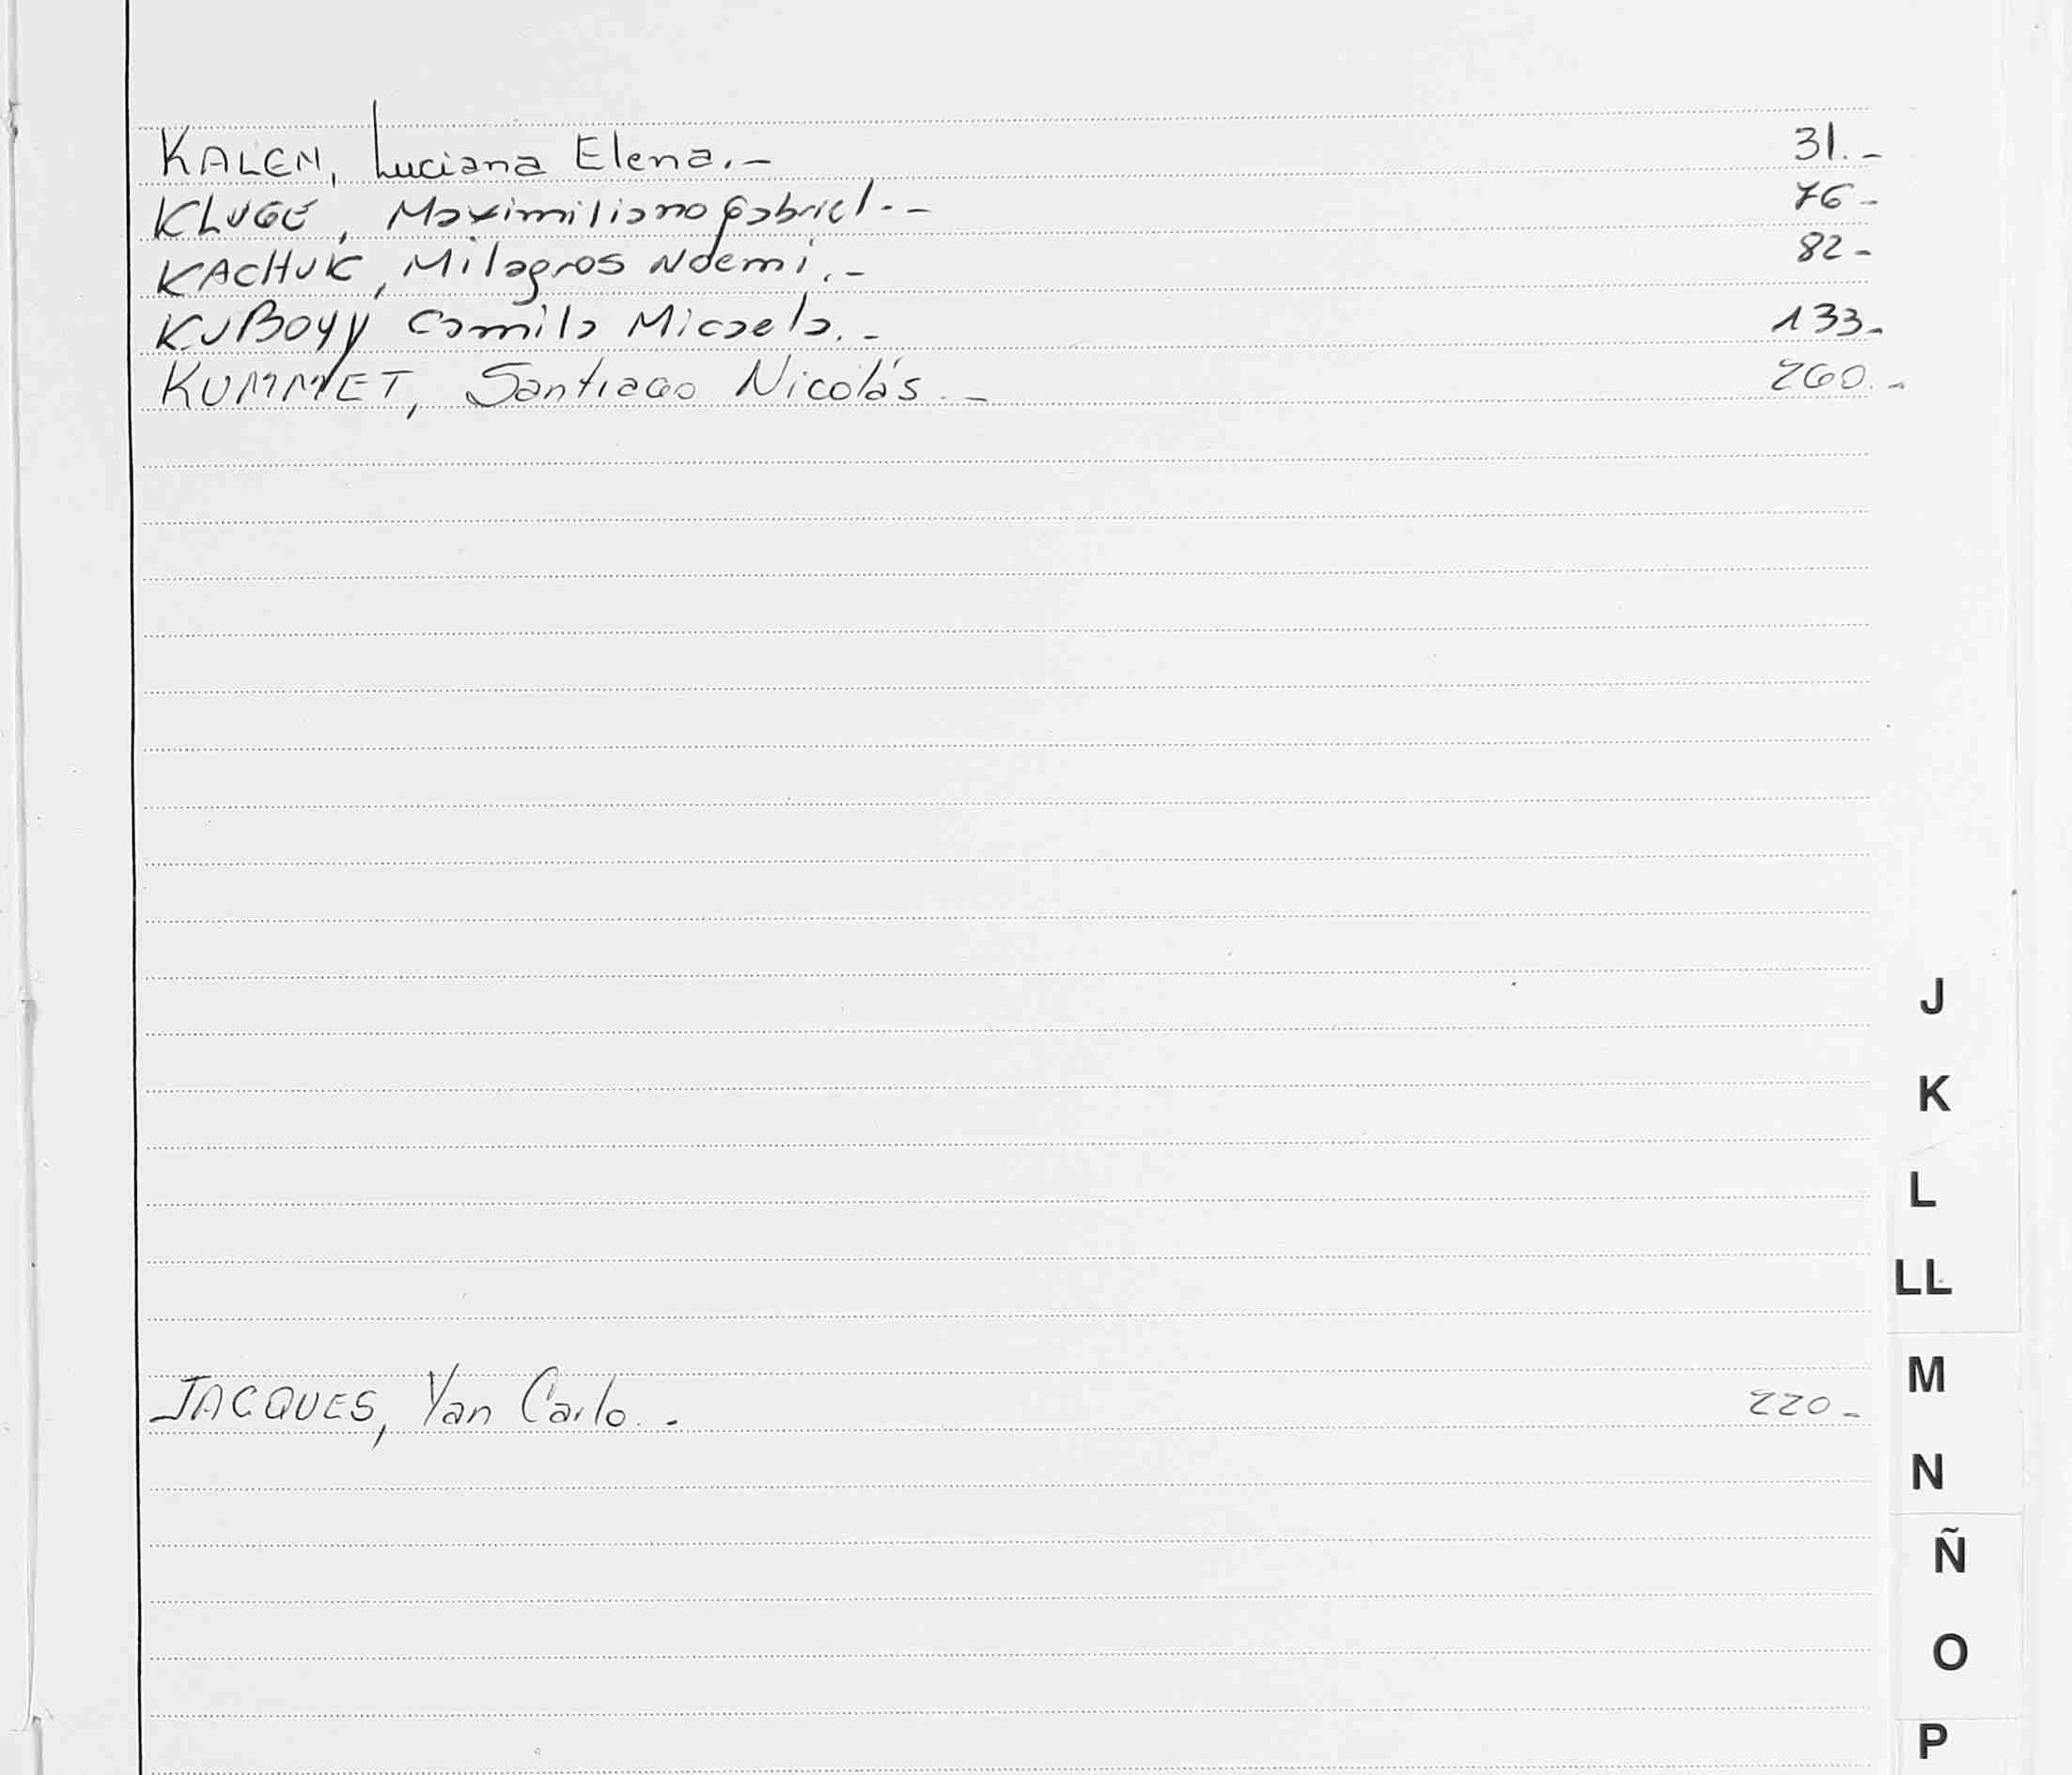 KALEN, Luciana Elena.- 31.-
KLUGE, Maximiliano Gabriel.- 76-
KACHUK, Milagros Noemi.- 82-
KUBOYY Camila Micaela.- 133-
KUMMET, Santiago Nicolás.- 260.-
J
K
L
LL
JACQUES, Yan Carlo.- 220-
M
N
Ñ
O
P